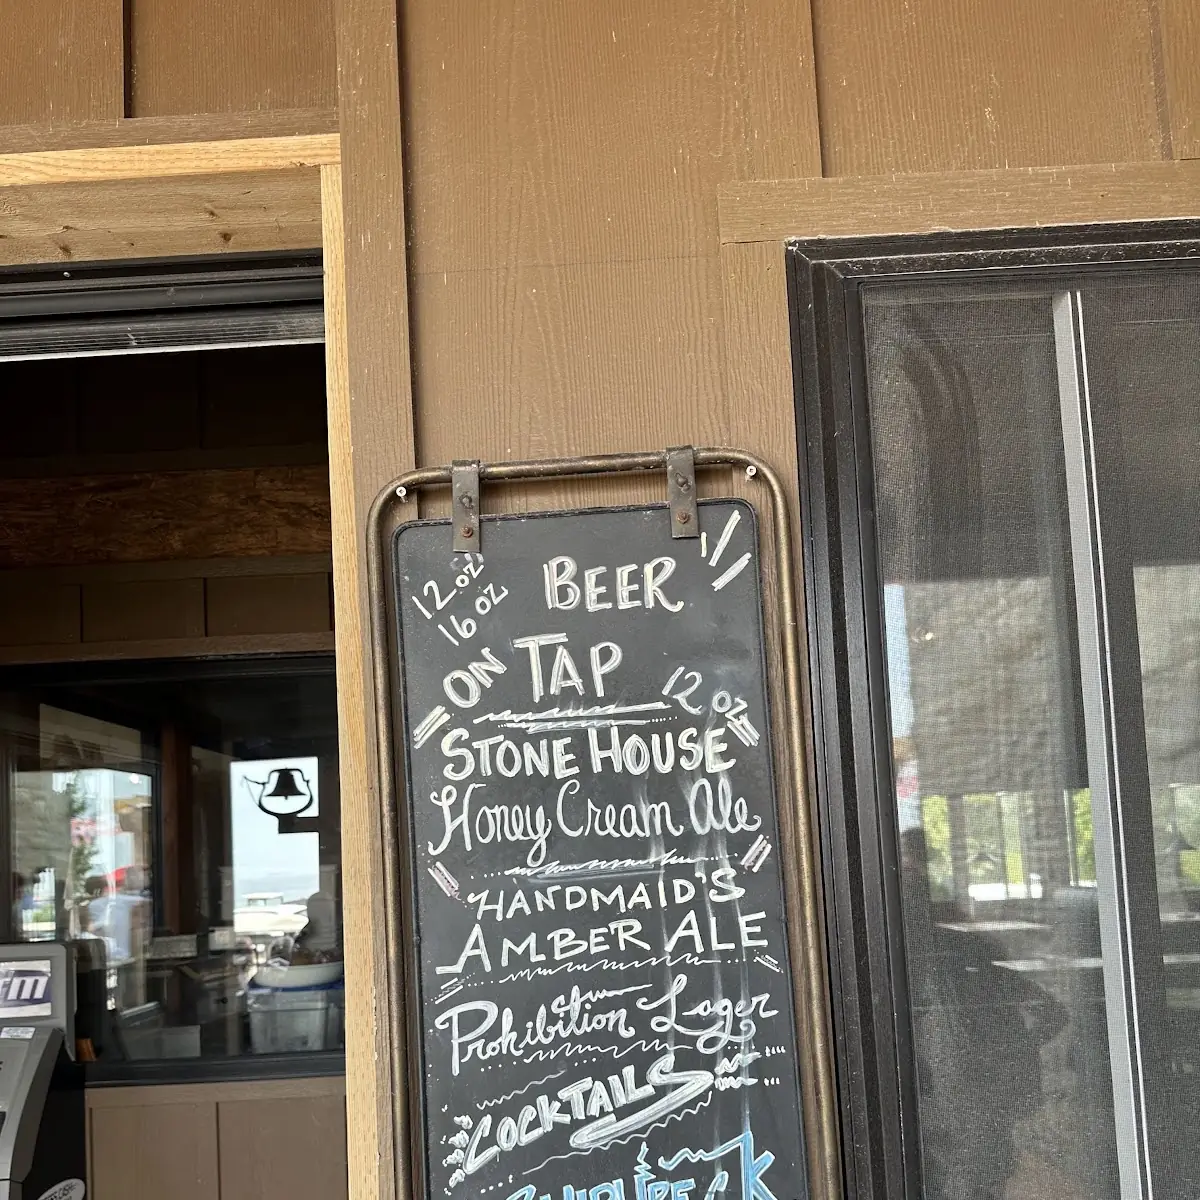 12 oz
16 oz
BEER
ON TAP
12 oz
STONE HOUSE
Honey Cream Ale
HANDMAID'S
AMBER ALE
Prohibition Lager
COCKTAILS
TM